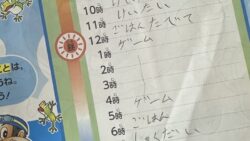 10時 けいたい
11時 ごはんたべて
12時 ゲーム
1時
2時
3時
4時 ゲーム
5時 ごはん
6時
とは、
うね。